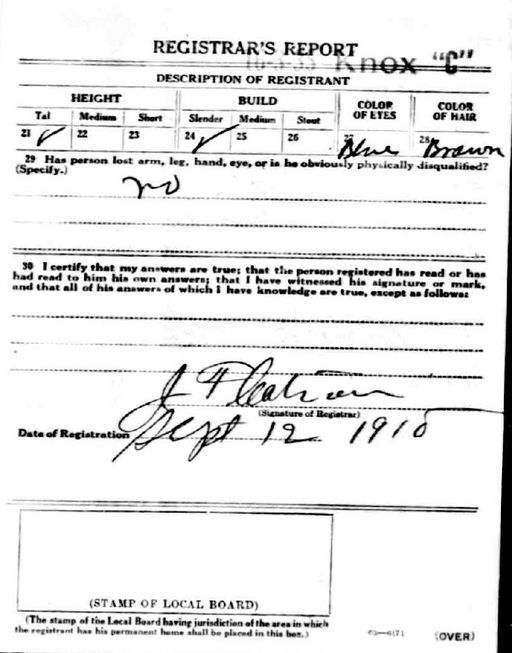 REGISTRAR'S REPORT
Knox "C"
DESCRIPTION OF REGISTRANT
HEIGHT BUILD COLOR OF EYES COLOR OF HAIR
Tal Medium Short Slender Medium Stout
21 ✓ 22 23 24 ✓ 25 26 27 Blue 28 Brown
29 Has person lost arm, leg, hand, eye, or is he obviously physically disqualified?
(Specify.)
no
30 I certify that my answers are true; that the person registered has read or has
had read to him his own answers; that I have witnessed his signature or mark,
and that all of his answers of which I have knowledge are true, except as follows:
(Signature of Registrar)
Date of Registration Sept 12 1918
(STAMP OF LOCAL BOARD)
(The stamp of the Local Board having jurisdiction of the area in which
the registrant has his permanent home shall be placed in this box.)
(OVER)